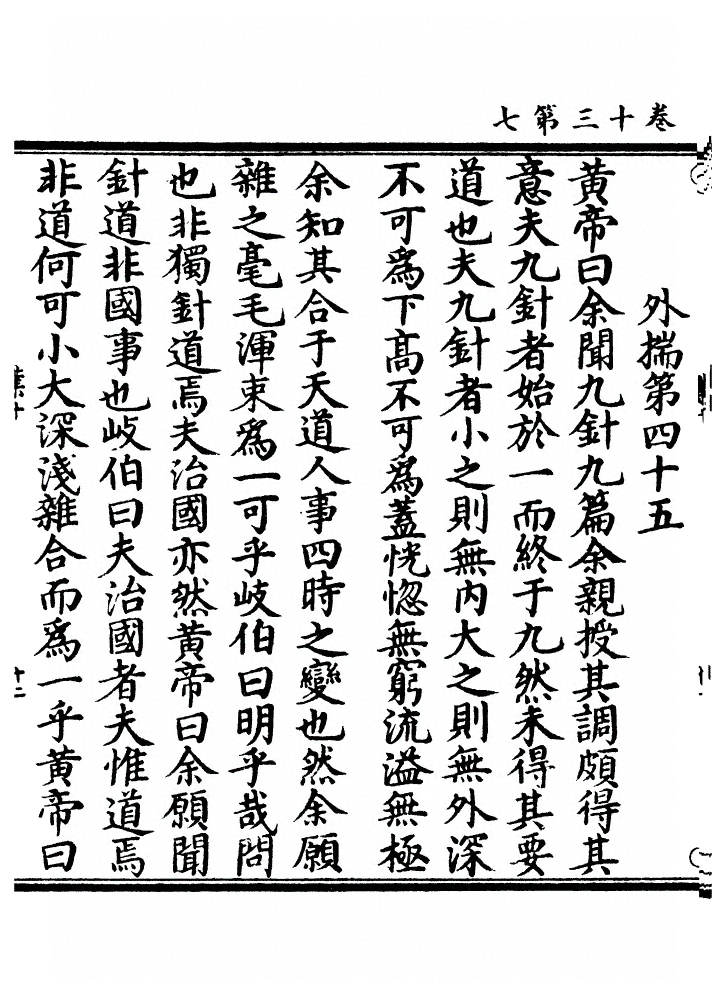 卷十三第七
外揣第四十五
黃帝曰余聞九針九篇余親授其調頗得其
意夫九針者始於一而終于九然未得其要
道也夫九針者小之則無內大之則無外深
不可爲下高不可爲蓋恍惚無窮流溢無極
余知其合于天道人事四時之變也然余願
雜之毫毛渾束爲一可乎岐伯曰明乎哉問
也非獨針道焉夫治國亦然黃帝曰余願聞
針道非國事也岐伯曰夫治國者夫惟道焉
非道何可小大深淺雜合而爲一乎黃帝曰
十二